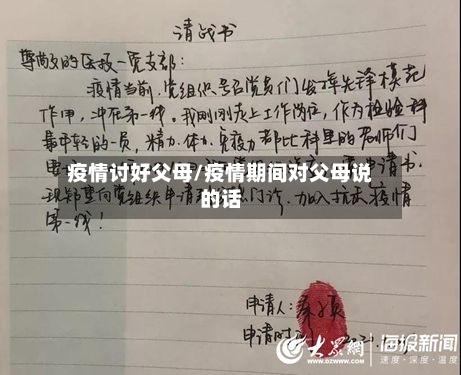 请战书
尊敬的医技一党支部:
疫情当前,党组织号召党员们发挥先锋模范
作用,冲在第一线。我刚刚走上工作岗位,作为检验科
最年轻的一员,精力、体力、免疫力都比科里的老师们
疫情讨好父母/疫情期间对父母说
的话
申请书,
现郑重向党组织申请 门诊,加入抗击疫情
第一线!
申请人:
申请时
大众网 海报新闻
速度·深度·温度